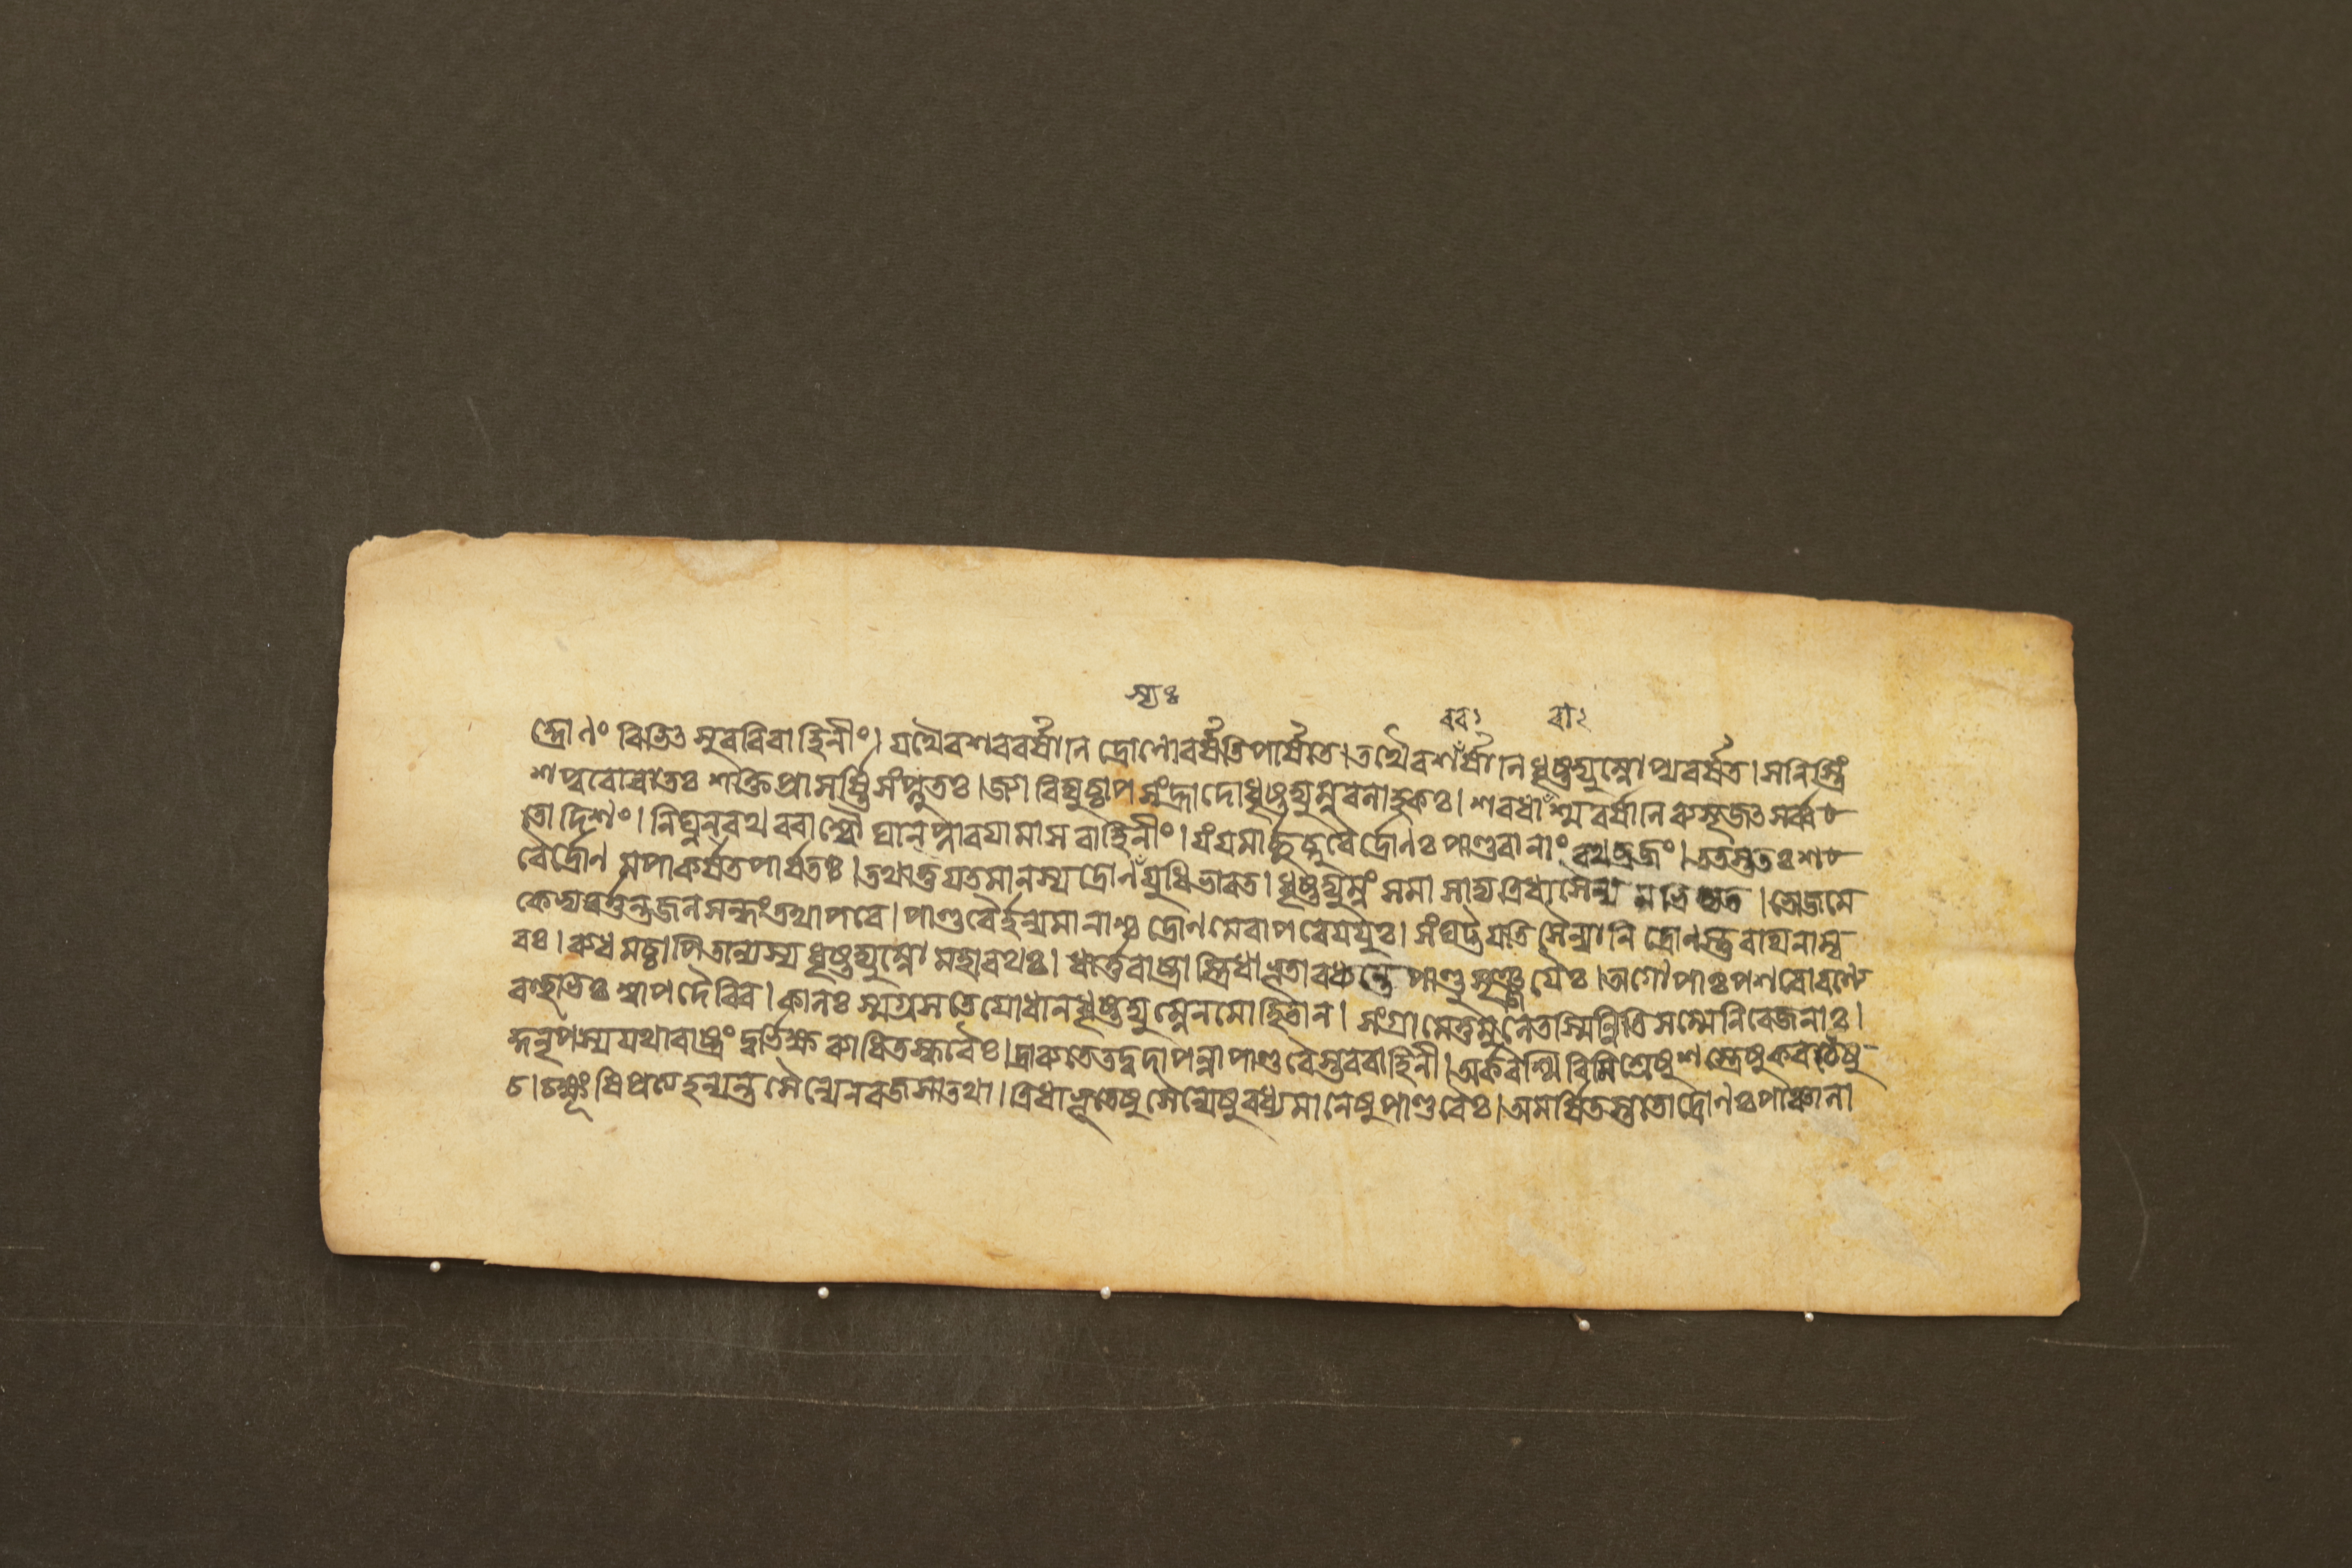 স্যঃ
রব২ রা২
দ্রোণং বিভিৎসুররিবাহিনীং। যথৈবশরবর্ষানি দ্রোণোবর্ষতিপার্ষতে। তথৈবশর্ষানিধৃষ্টদ্যুম্নোপ্যবর্ষত। সনিস্ত্রিং
শপুরোবাতঃ শক্তিপ্রাসর্ষ্টিসংপ্লুতঃ। জ্যাবিদ্যুচ্চাপসংহ্রাদোধৃষ্টদ্যুম্নবলাহকঃ। শরধারাঁশ্মবর্ষানিব্যসৃজৎসর্ব্বত
তোদিশং। নিঘ্নন্‌রথবরাশ্বৌঘান্‌প্লাবযামাসবাহিনীং। যংযমার্চ্ছচ্ছরৈর্দ্রোণঃপাণ্ডবানাংরথব্রজং। ততস্ততঃশ
রৈর্দ্রোণমপাকর্ষতপার্ষতঃ। তথাতুযতমানস্যদ্রোণঁযুধিভারত। ধৃষ্টদ্যুম্নংসমাসাদ্যত্রিধাসৈন্যমভিদ্যত। ভোজমে
কেভ্যবর্ত্তন্তজলসন্ধংতথাপরে। পাণ্ডবৈর্হন্যমানাশ্চদ্রোণমেবাপরেযযুঃ। সংঘট্টযতিসৈন্যানিদ্রোণস্তুরথিনাম্ব
রঃ। ব্যধমচ্চাপিতান্যস্যধৃষ্টদ্যুম্নোমহারথঃ। ধার্ত্তরাষ্ট্রাস্ত্রিধাভূতাবধ্যন্তেপাণ্ডুসৃঞ্জযৈঃ। অগোপাঃপশবোরণ্যে
বহুভিঃশ্বাপদৈরিব। কালঃস্মগ্রসতেযোধানধৃষ্টদ্যুম্নেনমোহিতান। সংগ্রামেতুমুলেতস্মিন্নিতিসম্মেনিরেজনাঃ।
কুনৃপস্যযথারাষ্ট্রংদুর্ভিক্ষব্যাধিতস্করৈঃ। দ্রাব্যতেতদ্বদাপন্নাপাণ্ডবৈস্তববাহিনী। অর্করশ্মিবিমিশ্রেষুশস্ত্রেষুকবচেষু
চ। চক্ষূংষিপ্রত্যহন্যন্তসৈন্যেনরজসাতথা। ত্রিধাভূতেষুসৈন্যেষুবধ্যমানেষুপাণ্ডবৈঃ। অমর্ষিতস্ততোদ্রোণঃপাঞ্চালা